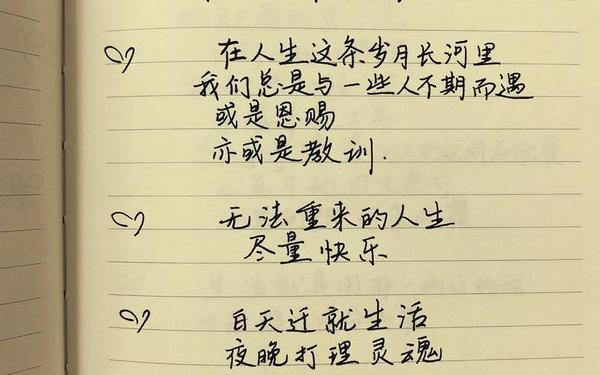 在人生这条岁月长河里
我们总是与一些人不期而遇
或是恩赐
亦或是教训.
无法重来的人生
尽量快乐
白天迁就生活
夜晚打理灵魂